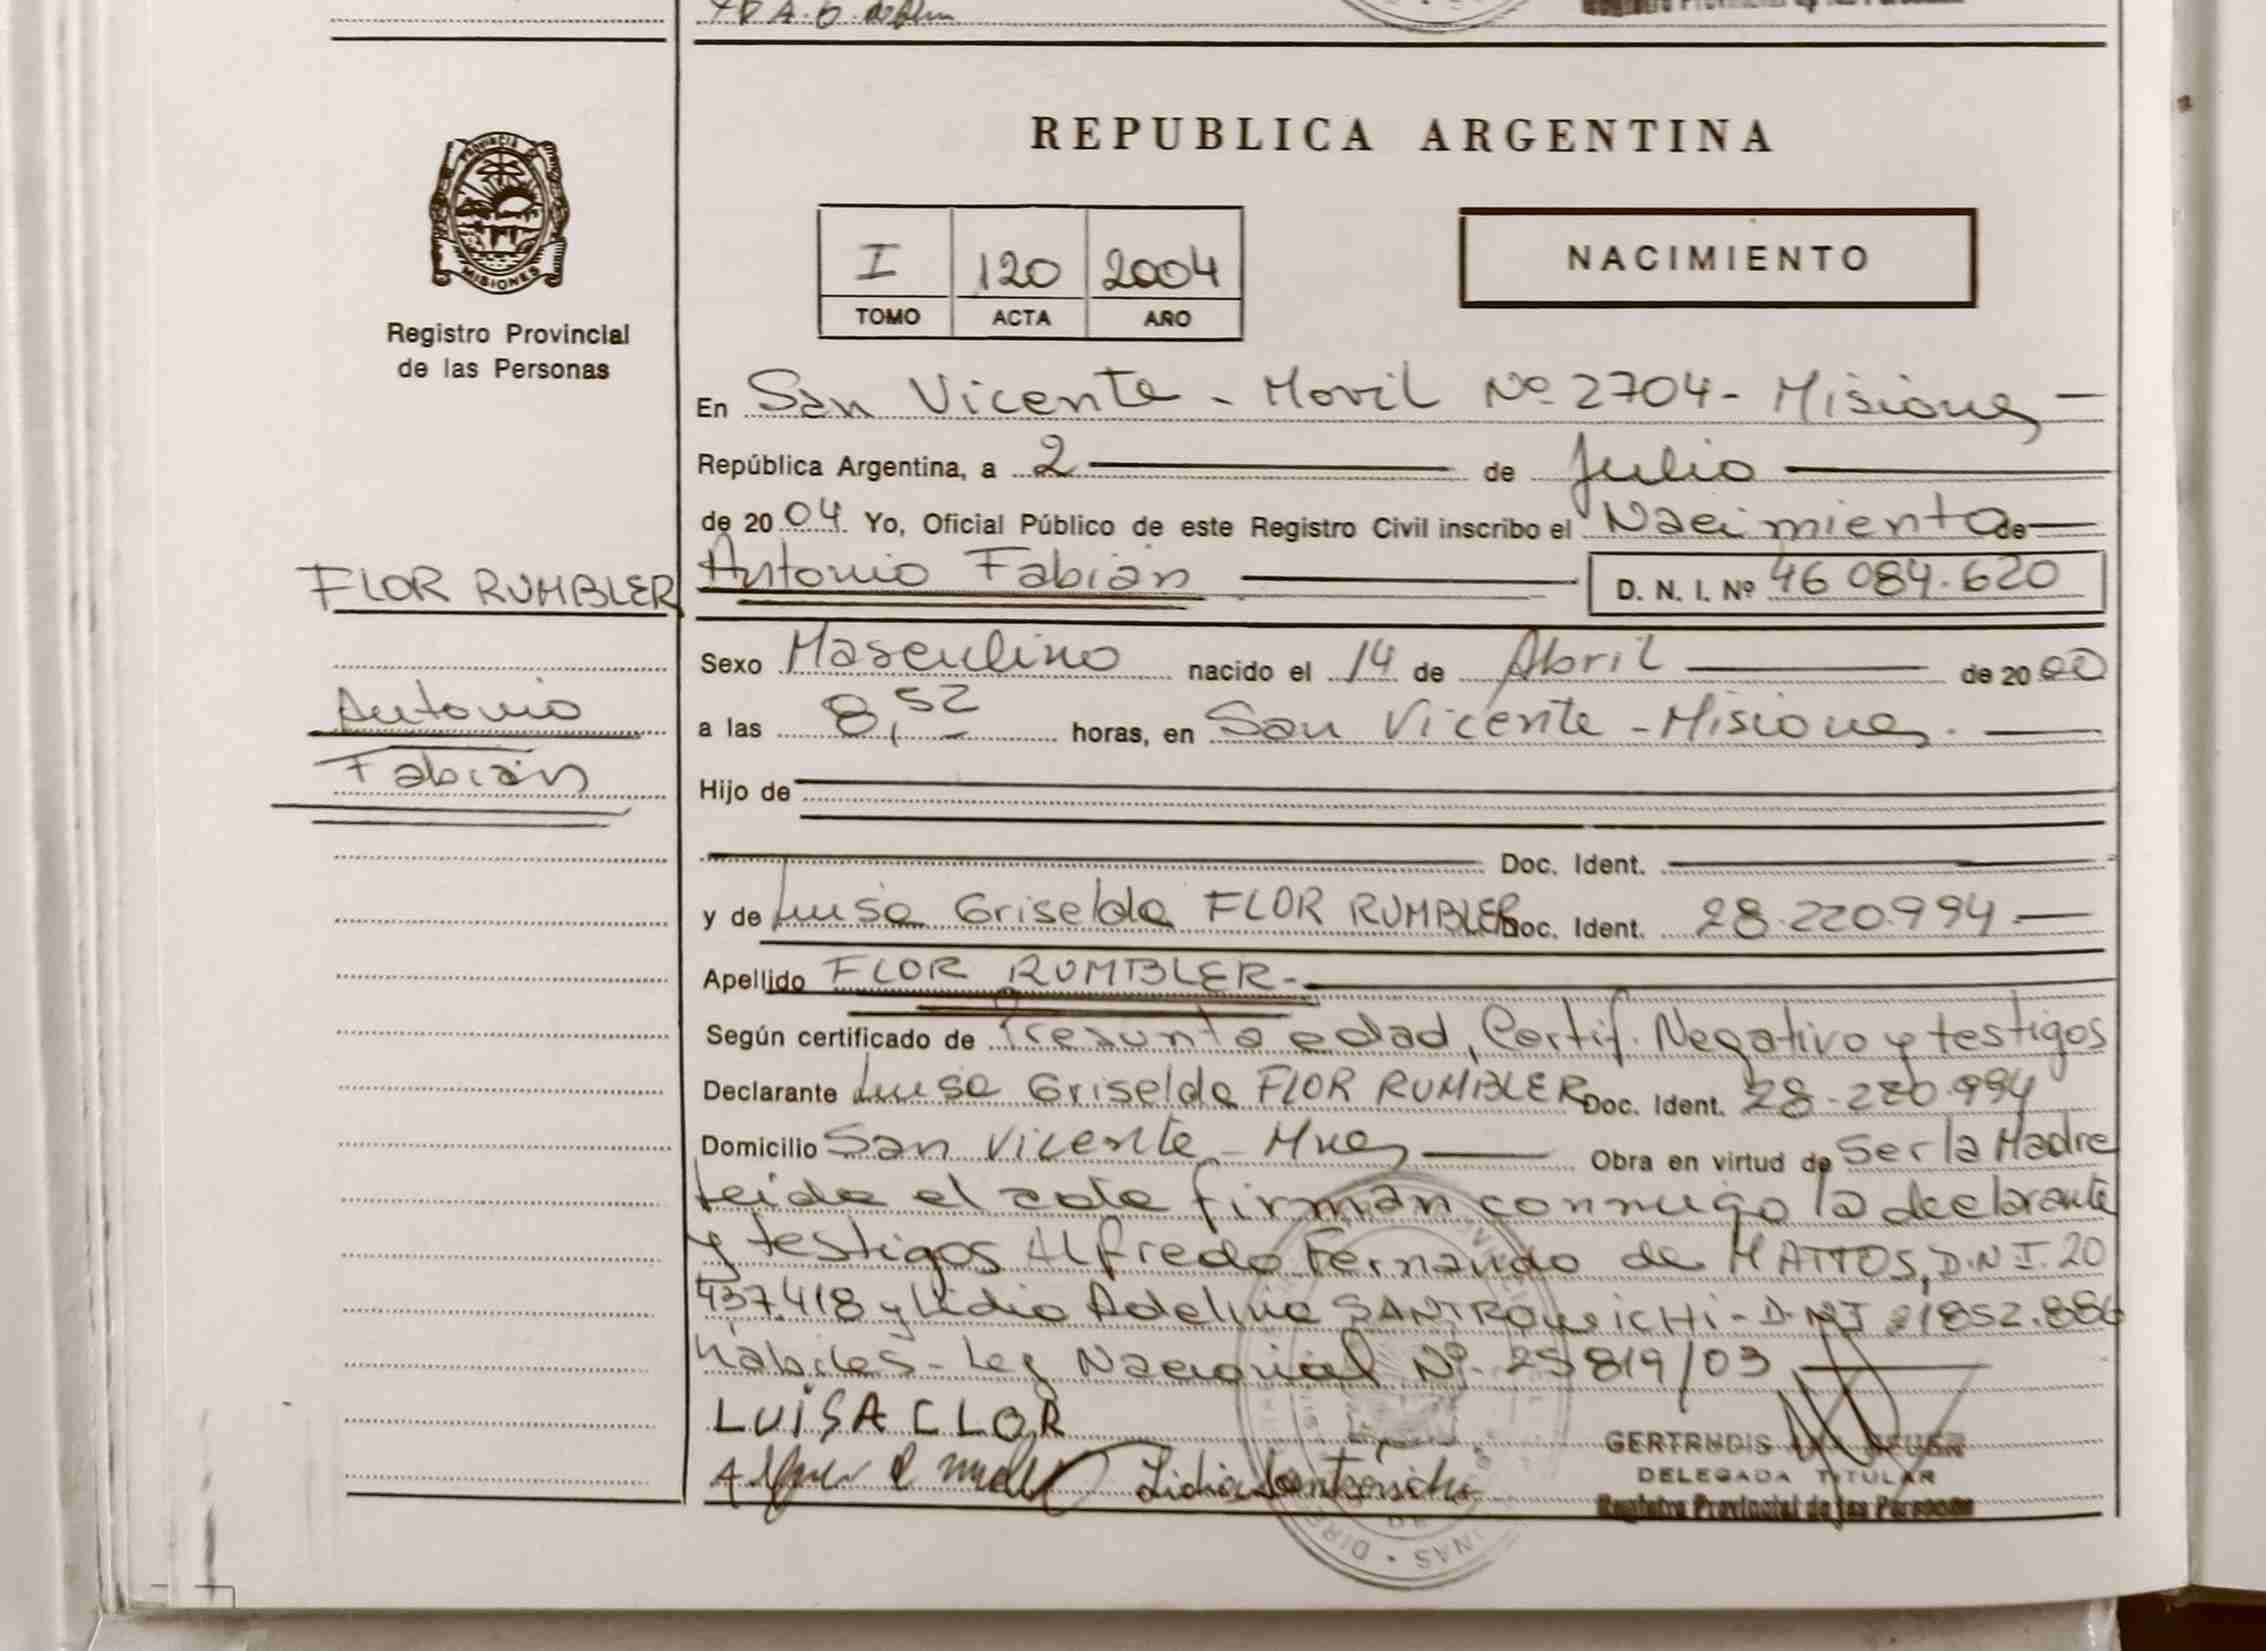 REPUBLICA ARGENTINA
PROVINCIA DE
MISIONES
Registro Provincial
de las Personas
I 120 2004
TOMO ACTA AÑO
NACIMIENTO
En San Vicente - Movil Nº 2704 - Misiones
República Argentina, a 2 de Julio
de 2004 Yo, Oficial Público de este Registro Civil inscribo el Nacimiento de
FLOR RUMBLER
Antonio Fabián
D. N. I. Nº 46 084.620
Sexo Masculino nacido el 14 de Abril de 2000
Antonio
Fabián
a las 8,52 horas, en San Vicente - Misiones.
Hijo de
Doc. Ident.
y de Luisa Griselda FLOR RUMBLER Doc. Ident. 28.220.994
Apellido FLOR RUMBLER -
Según certificado de Presunta edad, Certif. Negativo y testigos
Declarante Luisa Griselda FLOR RUMBLER Doc. Ident. 28.220.994
Domicilio San Vicente - Mnes Obra en virtud de Ser la Madre
leida el acta firman conmigo la declarante
y testigos Alfredo Fernando de MATTOS, D.N.I. 20
437.418 y Lidia Adelina - D.N.I. 21852.886
hábiles - Ley Nacional Nº 25819/03
LUISA FLOR
Lidia
GERTRUDIS
DELEGADA TITULAR
Registro Provincial de las Personas